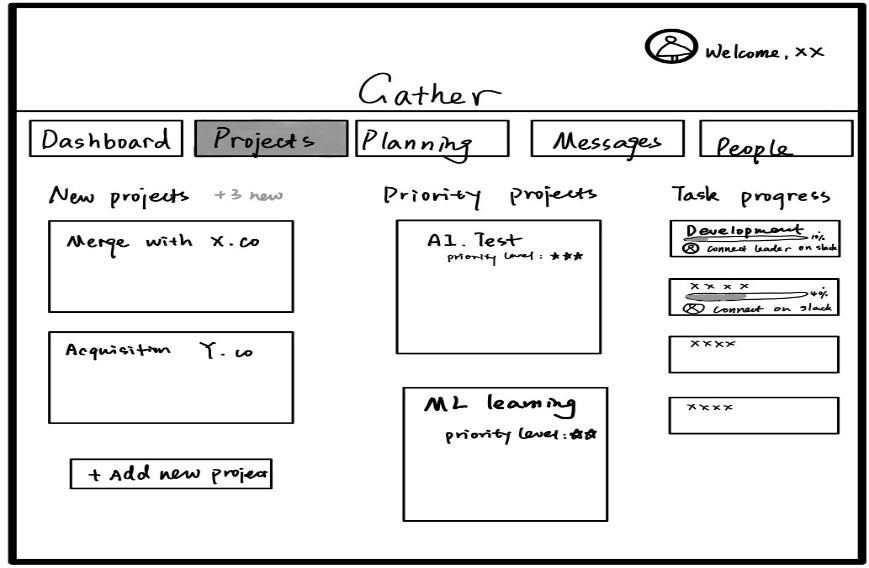 Welcome, xx
Gather
Dashboard
Projects
Planning
Messages
People
New projects +3 new
Merge with X.co
Acquisition Y.co
+ Add new project
Priority projects
AI. Test
priority level: ★★★
ML learning
priority level: ★★
Task progress
Development
10%
connect leader on slack
x x x x
40%
connect on slack
xxxx
xxxx